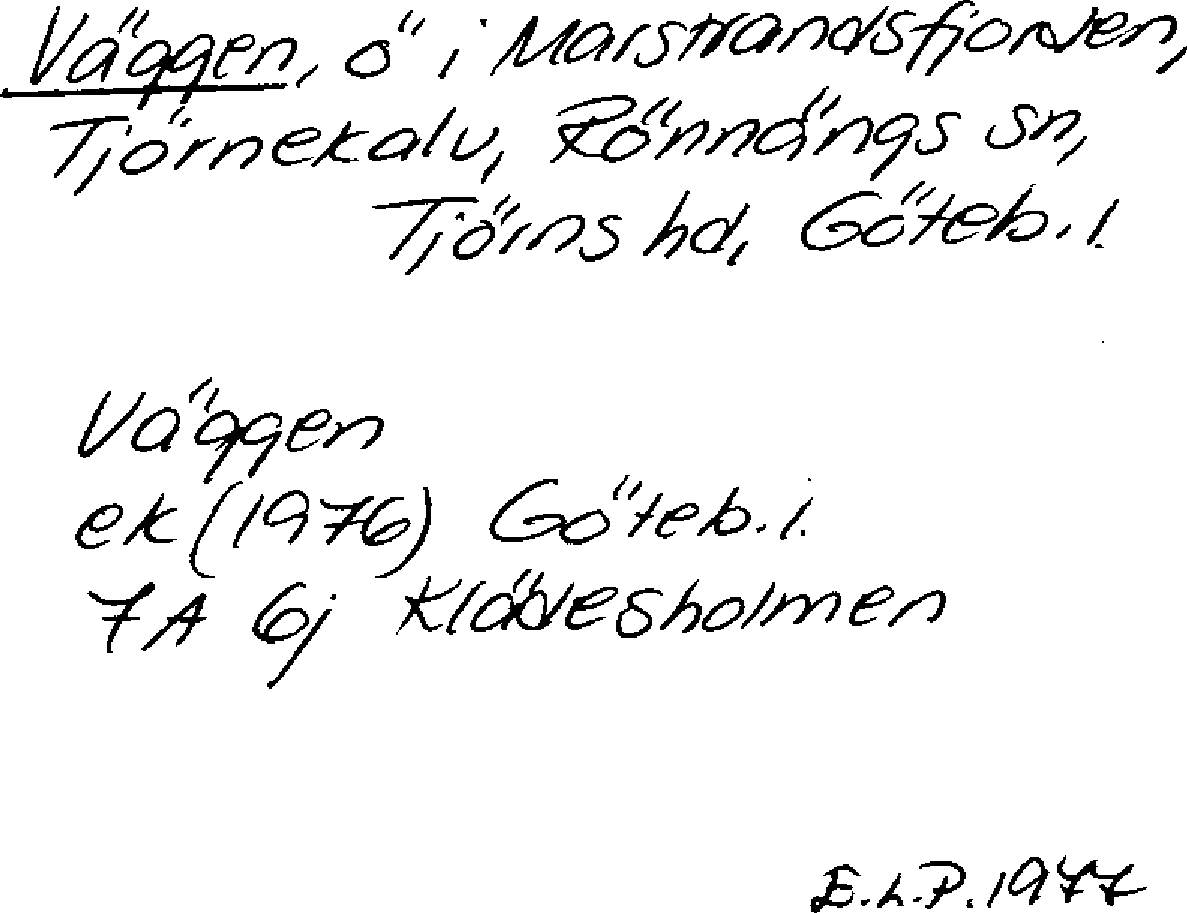 Väggen, ö i Marstrandsfjorden,
Tjörnekalv, Rönnängs sn,
Tjörns hd, Göteb. l.
Väggen
ek (1976) Göteb. l.
7A 6j Klädesholmen
E.L.P. 1977